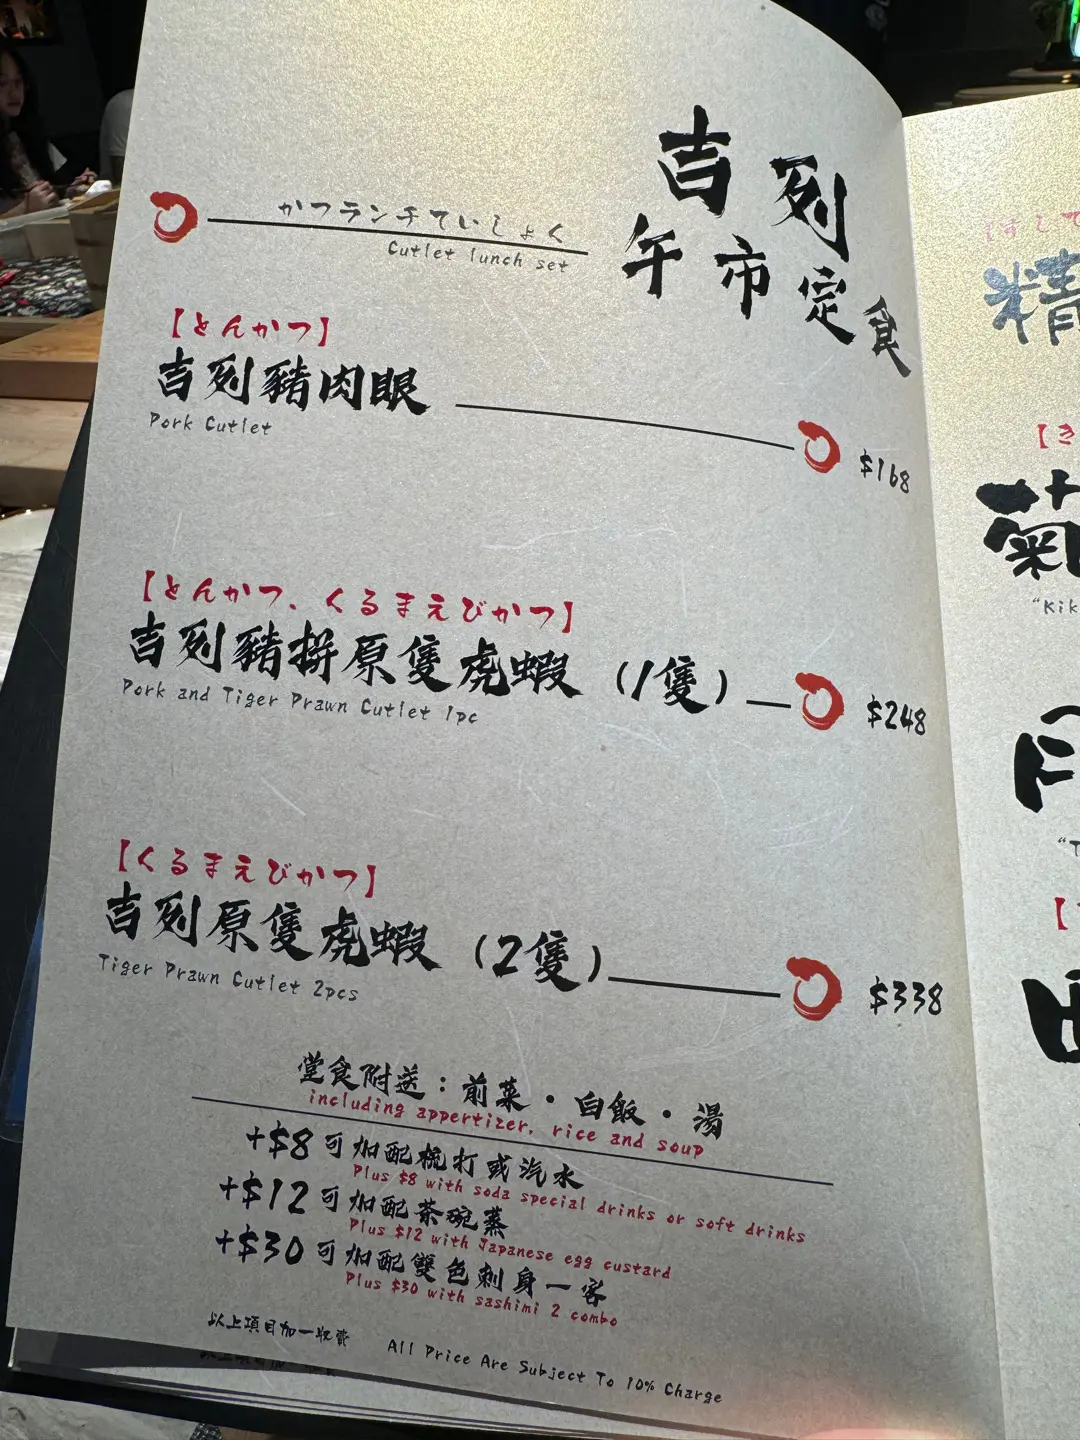 吉列
午市定食
かつランチていしょく
Cutlet lunch set
【とんかつ】
吉列豬肉眼
Pork Cutlet
$168
【とんかつ、くるまえびかつ】
吉列豬拼原隻虎蝦（1隻）
Pork and Tiger Prawn Cutlet 1pc
$248
【くるまえびかつ】
吉列原隻虎蝦（2隻）
Tiger Prawn Cutlet 2pcs
$338
堂食附送：前菜・白飯・湯
including appertizer, rice and soup
+$8可加配梳打或汽水
Plus $8 with soda special drinks or soft drinks
+$12可加配茶碗蒸
Plus $12 with Japanese egg custard
+$30可加配雙色刺身一客
Plus $30 with sashimi 2 combo
以上項目加一收費 All Price Are Subject To 10% Charge
精
菊
"Kik